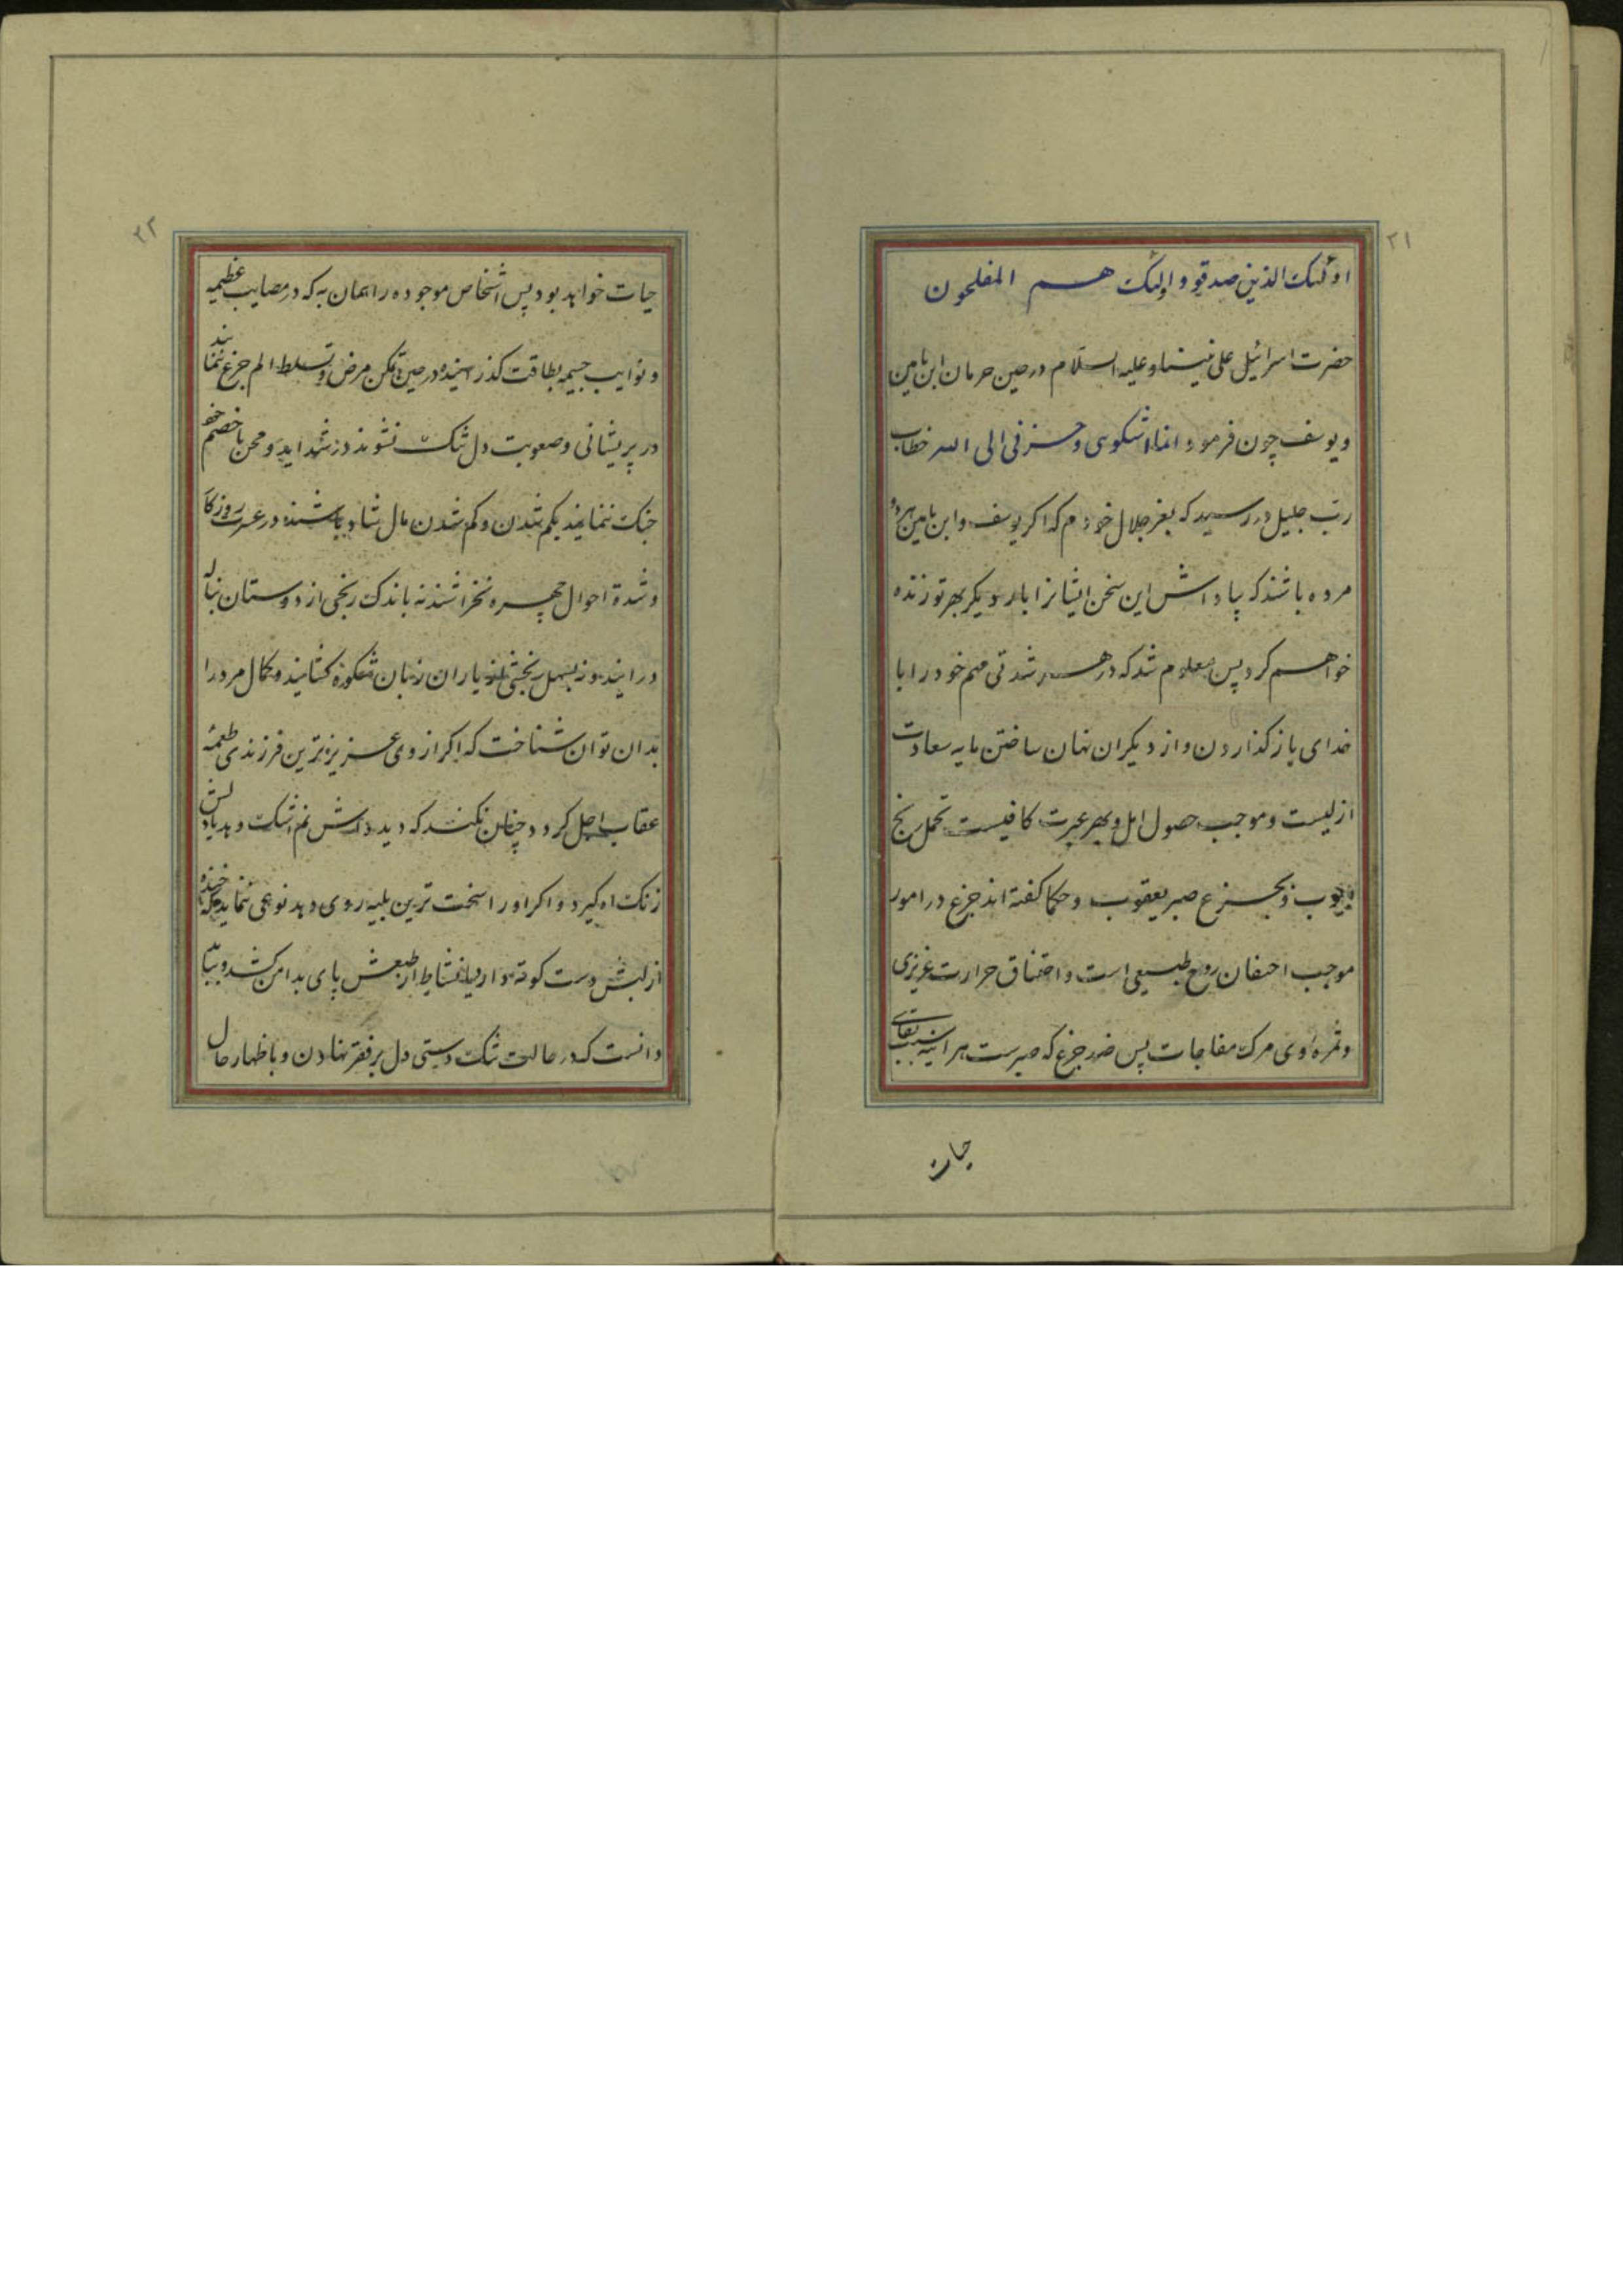 ۲۱
اولئک الذین صدقو و اولئک هم المفلحون
حضرت اسرائیل علی نبینا و علیه السلام در حین حرمان ابن یامین
و یوسف چون فرمود انما اشکوبی و حزنی الی الله خطاب
رب جلیل در رسید که بعز جلال خودم که اکر یوسف و ابن یامین هر دو
مرده باشند که پاداش این سخن ایشانرا بار دیکر بهر تو زنده
خواهم کرد پس معلوم شد که در هر شدتی مهم خود را با
خدای باز کذاردن و از دیکران نهان ساختن مایه سعادت
ازلیست و موجب حصول امل و بهر عبرت کافیست تحمل رنج
ایوب و بجزع صبر یعقوب و حکما کفته اند جزع در امور
موجب احتقان روح طبیعی است و اختناق حرارت غریزی
و ثمره اوی مرک مفاجات پس ضد جزع که صبرست هر اینه سبب بقای
حیات
۲۲
حیات خواهد بود پس اشخاص موجوده را همان به که در مصایب عظیمه
و نوایب جسیمه بطاقت کذرانیده در حین تمکن مرض و تسلط الم جزع ننمایند
در پریشانی و صعوبت دل تنک نشوند در شداید و محن با خصم
جنک ننمایند بکم شدن و کم شدن مال شاد باشند در عسرت روزکار
و شدة احوال چهره نخراشند نه باندک رنجی از دوستان بناله
در ایند و نه بسهل رنجشی از یاران زبان شکوه کشایند و کمال مرد را
بدان توان شناخت که اکر از وی عزیزترین فرزندی طعمه
عقاب اجل کردد چنان نکند که دیده اش نم اشک دهد یا دلش
زنک اه کیرد و اکر او را سخت ترین بلیه روی دهد نوعی ننماید که خنده
از لبش دست کوته دارد یا نشاط از طبعش پای بدامن کشد و بباید
دانست که در حالت تنک دستی دل بر فقر نهادن و باظهار حال